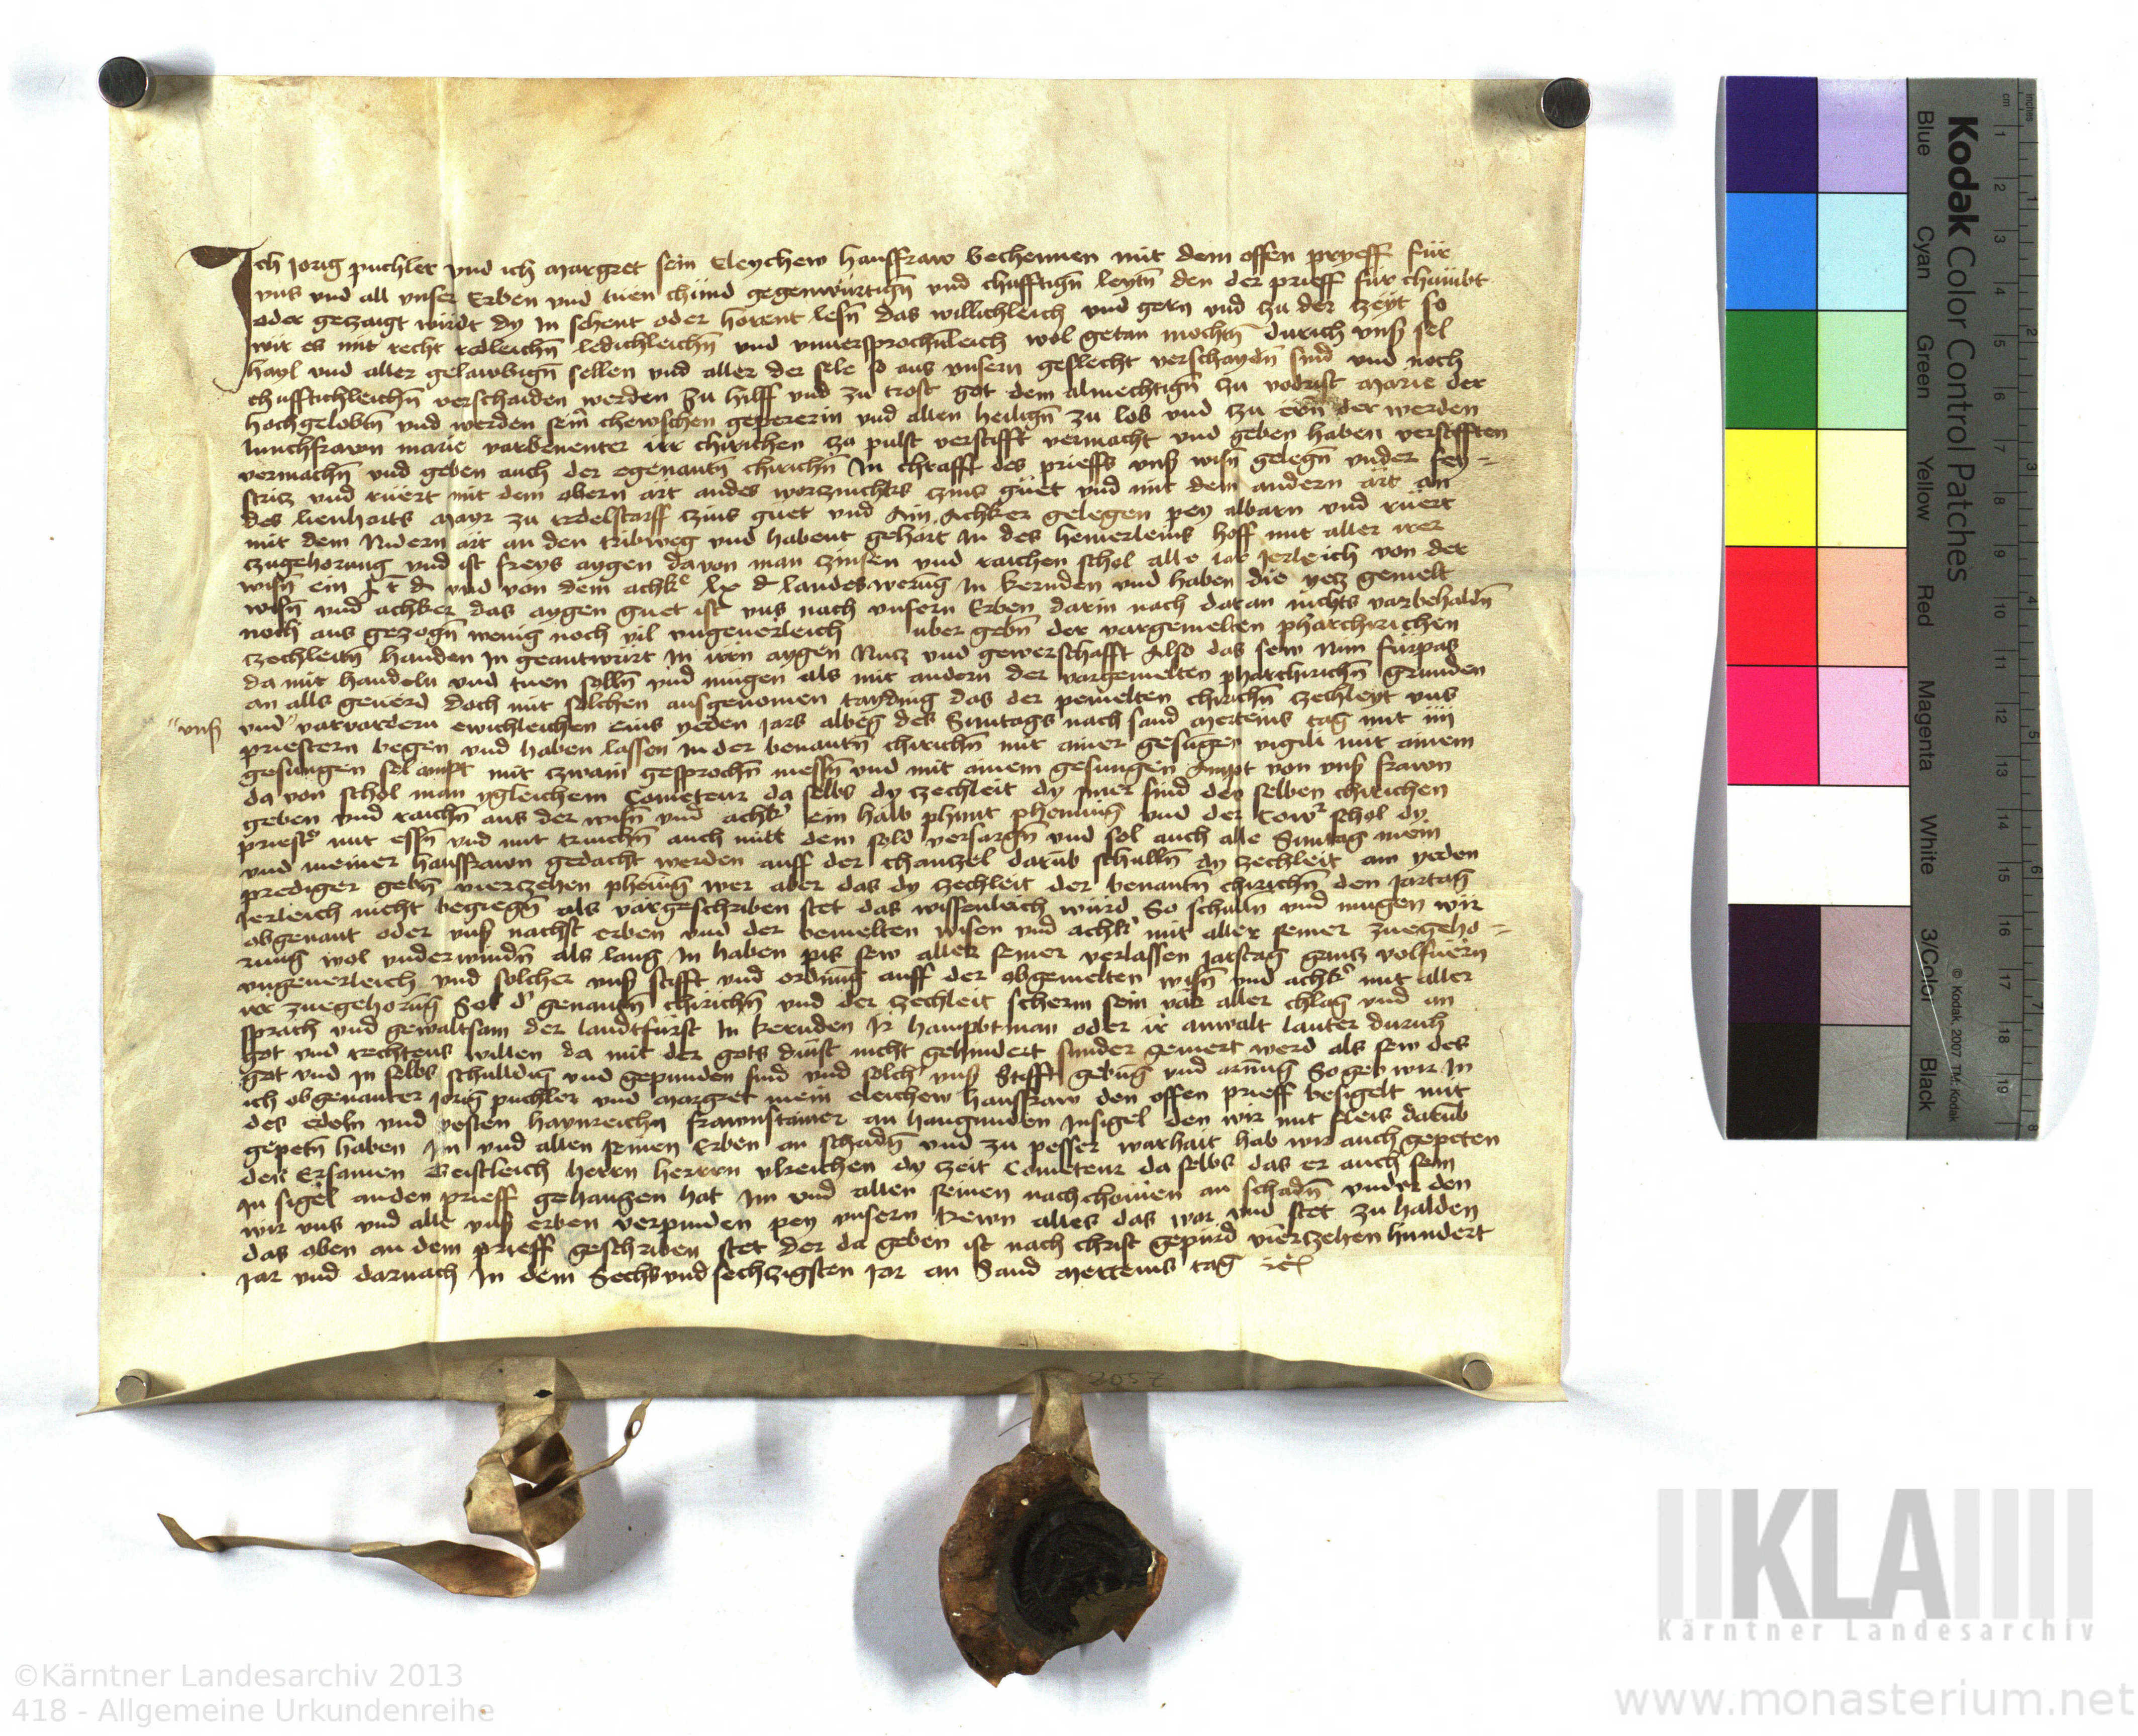 Ich Jorig puchler vnd ich margret sein Eleychew hausfraw bechennen mit dem offen pryeff für
vns vnd all vnser Erben vnd tuen chünd gegenwürtign̄ vnd chufftign̄ leytn̄ den der prieff für chumbt
oder geczaigt wirdt dy In sehent oder horent lesn̄ das willichleich vnd gern vnd zu der zeyt so
wir es mit recht redleichn̄ ledichleichn̄ vnd vnuersprochnleich wol getan mochtn̄ durich vnß sel
hayl vnd aller gelawbign̄ sellen vnd aller der sele so aus vnsern geslecht verschaydn̄ sind vnd noch
chufftichleichn̄ verschaiden werden zu hilff vnd zu trost got dem almechtign̄ zu vodrist marie der
hochgelobtn̄ vnd werden sein̄ chewschen gepererin vnd allen heilign̄ zu lob vnd zu ern̄ der werden
Junchfrawn marie irr chirichen zu pulst verstifft vermacht vnd geben haben verstifften
vermachn̄ vnd geben auch der egenantn̄ chirichn̄ In chrafft des prieffs vnß wisn̄ gelegn̄ vnder fey=
stricz vnd rüert mit dem obern art andes czins güet vnd mit dem andern art an
des lienharts mayr zu czins guet vnd Ain Achker gelegen pey albarn vnd rüert
mit dem Nidern art an den tribweg vnd habent gehört In des hemerleins hoff mit aller irer
czugehorung vnd ist freys aygen dauon man zinsen vnd raichen schol alle iar Jerleich von der
wisn̄ ein vnd von dem achkͤ lx d landeswerūg In kernden vnd haben die yecz gemelt
wisn̄ vnd achker das aygen guet ist vns nach vnsern Erben darin nach daran nichts varbehaldn̄
noch aus gezogn̄ wenig noch vil vngeuerleich uber gebn̄ der vargemelten pharchirichen
zechleitn̄ handen In geantwürt In iren aygen Nucz vnd gewerschafft Also das sew nun fürpas
da mit handeln vnd tuen solln̄ vnd mugen als mit andern der vargemelten pharchirichn̄ grunden
an alls geuerd doch mit solchen ausgenomen tayding das der pemelten chirichn̄ zechleyt vns
"vnß vnd" varvardern ewichleichen eins yeden Jars albeg des Suntags nach sand merteins tag mit iiij
priestern begen vnd haben lassen In der benantn̄ chirichn̄ mit ainer gesūgen vigili mit ainem
gesungen sel ampt mit zwain gesprochn̄ messn̄ vnd mit ainem gesungen Ampt von vnß frawn
da von schol man ygleichem Cometeur da selbs dy zechleit dy ymer sind der selben chirichen
geben vnd raichn̄ aus der wisn̄ vnd achkʾ ein halb phunt phenning vnd der schol dy
mit essn̄ vnd mit trinchn̄ auch mitt dem sold versargn̄ vnd sol auch alle Suntag mein
vnd meiner hausfrawn gedacht werden auff der chanczel darūb schulln̄ dy zechleit aim yeden
prediger gebn̄ vierzehen phēnig wer aber das dy zechleit der benantn̄ chirichn̄ den Jartag
Jerleich nicht begiegn̄ als vargeschriben stet das wissenleich würd So schulln̄ vnd mugen wir
obgenant oder vnß nachst erben vnd der bemelten wisen vnd achkʾ mit aller seiner zuegeho=
rung wol vnderwindn̄ als lang In haben pis sew aller seiner verlassen Jarstag gancz volfuern
vngeuerleich vnd solcher vnß stifft vnd ordnūg auff der obgemelten wisn̄ vnd achkʾ mit aller
irr zuegehorūg Sol dʾ genantn̄ chirichn̄ vnd der zechleit scherm sein var aller chlag vnd an
sprach vnd gewaltsam der landtfürst In kernden Ir haupbtman oder ir anwalt lauter durich
got vnd rechtens willen da mit der gots dinst nicht gehindert sunder gemert werd als sew des
got vnd In selbs schulldig vnd gepunden sind vnd solchʾ vnß Stifft gebūg vnd So geb wir In
ich obgenanter Jorig puchler vnd margret mein eleichew hausfraw den offen prieff besigelt mit
des edeln vnd vesten haynreichn frawnstainer an hangunden Insigel den wir mit fleis darūb
gepetn̄ haben Im vnd allen seinen Erben an schadn̄ vnd zu pesser warhait hab wir auch gepeten
den Ersamen Geistleich herrn herrrn vlreichen dy zeit Cometeur da selbs das er auch sein
In sigel anden prieff gehangen hat Im vnd allen seinen nachchomen an schadn̄ vnder den
wir vns vnd alle vnß erben verpinden pey vnsern trewn alles das war vnd stet zu halden
das oben an dem prieff geschriben stet der da geben ist nach christ gepurd vierzehen hundert
Jar vnd darnach In dem Sechsvndsechzigsten Jar an Sand merteins tag
2057
Kodak Color Control Patches
Blue Cyan Green Yellow Red Magenta White 3/Color Black
© Kodak, 2007 TM: Kodak
cm 1 2 3 4 5 6 7 8 9 10 11 12 13 14 15 16 17 18 19
inches 1 2 3 4 5 6 7 8
KLA
Kärntner Landesarchiv
©Kärntner Landesarchiv 2013
418 - Allgemeine Urkundenreihe
www.monasterium.net